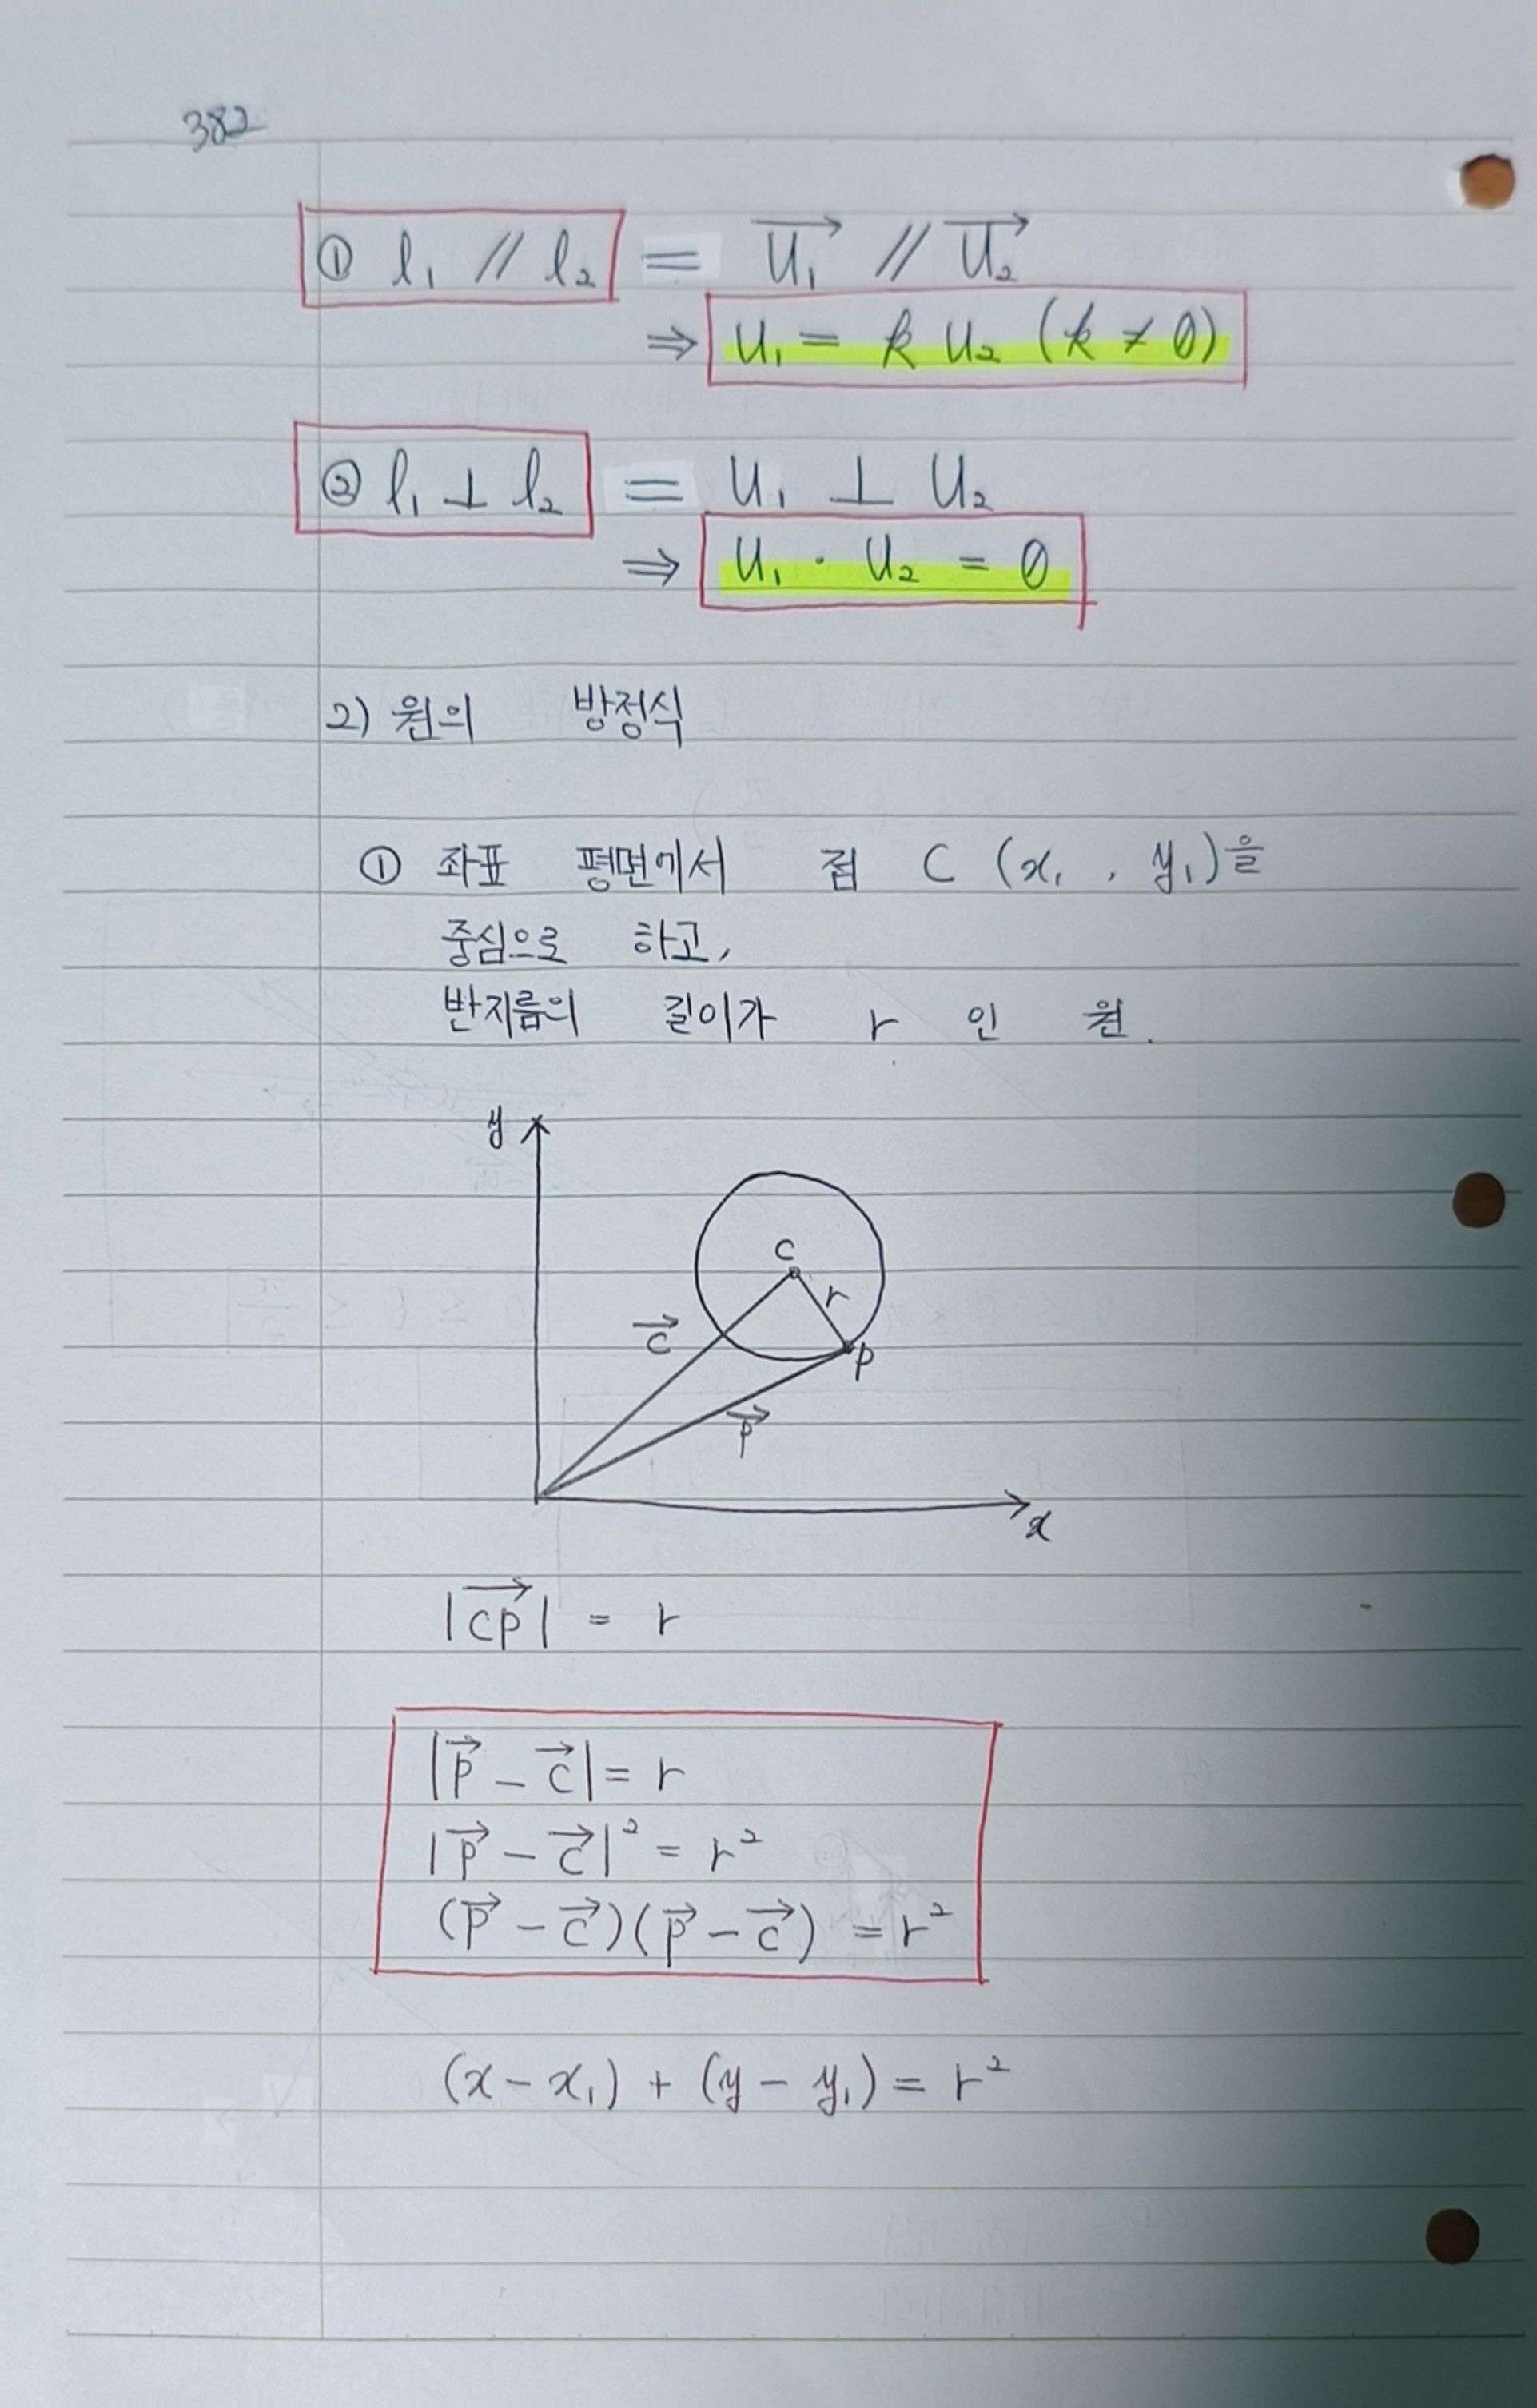 382
① l₁ // l₂ = →U₁ // →U₂
⇒ U₁ = k U₂ (k ≠ 0)
② l₁ ⊥ l₂ = U₁ ⊥ U₂
⇒ U₁ · U₂ = 0
2) 원의 방정식
① 좌표 평면에서 점 C (x₁ , y₁)을
중심으로 하고,
반지름의 길이가 r 인 원.
y
C
r
→c
P
→p
x
|→CP| = r
|→p − →c| = r
|→p − →c|² = r²
(→p − →c)(→p − →c) = r²
(x − x₁) + (y − y₁) = r²